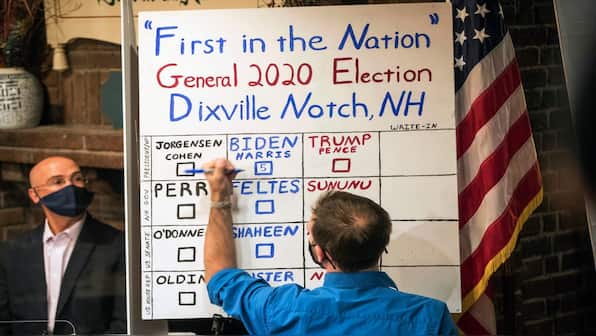 "First in the Nation"
General 2020 Election
Dixville Notch, NH
WRITE-IN
PRESIDENT JORGENSEN COHEN BIDEN HARRIS 5 TRUMP PENCE
NH GOV. PERR FELTES SUNUNU
US SENATE O'DONNE SHAHEEN
US HOUSE REP OLDIN STER N